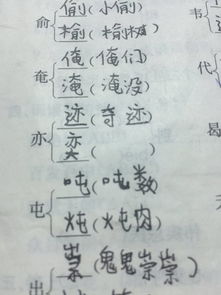 俞 偷(小偷) 韦
榆(榆树)
奄 俺(俺们)
淹(淹没) 代
亦 迹(奇迹)
奕( ) 曷
屯 吨(吨数)
炖(炖肉)
出 祟(鬼鬼祟祟)